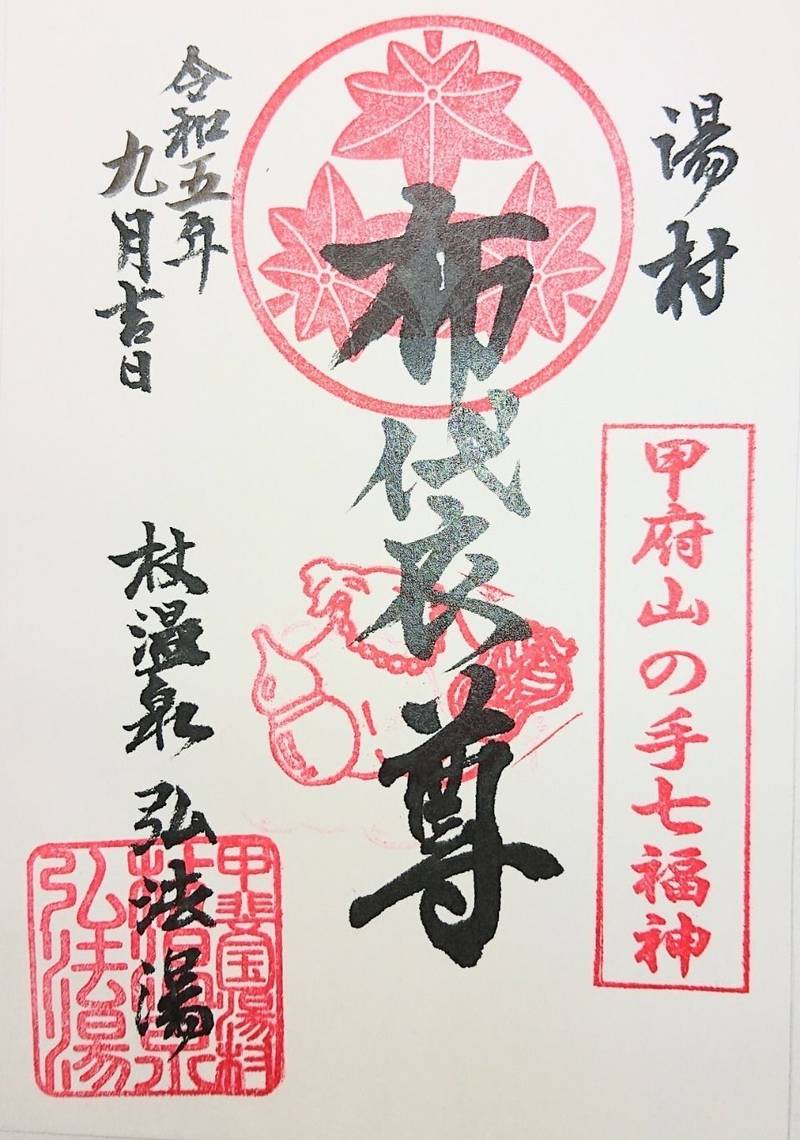 湯村
甲府山の手七福神
布代衣尊
令和五年
九月吉日
杖温泉 弘法湯
甲斐国湯村
杖温泉
弘法湯